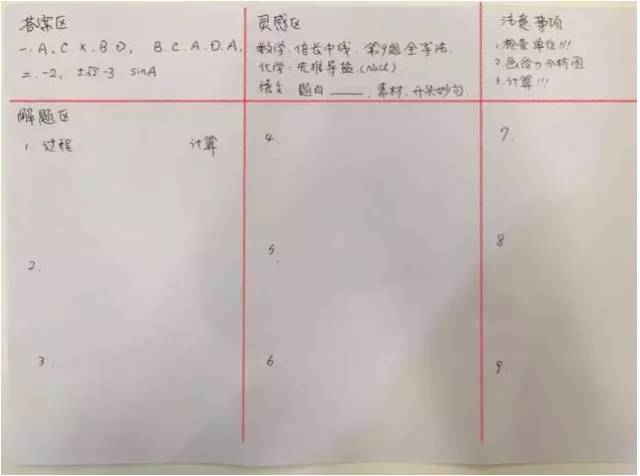 答案区
一. A, C × . B. D, B. C. A. D. A.
二. -2, ±√5 -3 sinA
灵感区
数学: 倍长中线. 第9题 全等法.
化学: 先推导盐 (NaCl)
语文 题目 ____, 素材, 开头妙句.
注意事项
1. 检查单位!!!
2. 画受力分析图
3. 计算!!!
解题区
1. 过程. 计算
2.
3.
4.
5.
6.
7.
8
9.